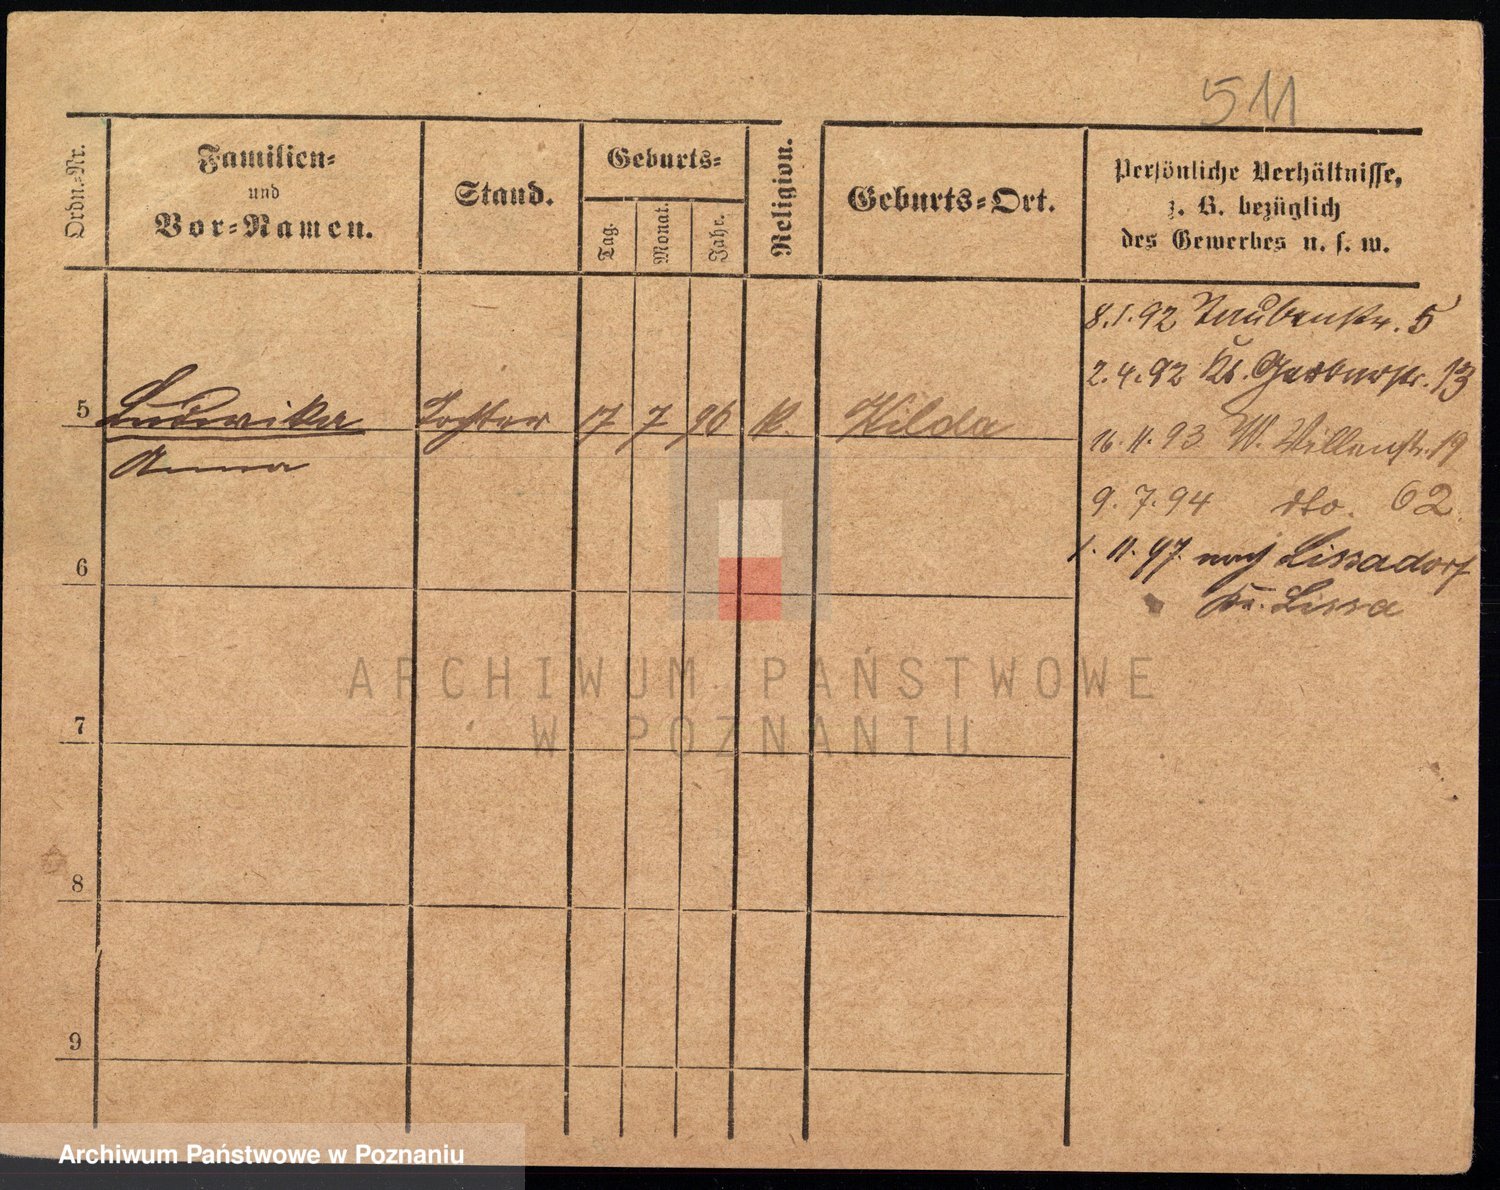 511
Ordn.-Nr.
Familien-
und
Vor-Namen.
Stand.
Geburts-
Tag.
Monat.
Jahr.
Religion.
Geburts-Ort.
Persönliche Verhältnisse,
z. B. bezüglich
des Gewerbes u. s. w.
8.1.92 Taubenstr. 5
2.4.92 Kl. Gerberstr. 13
5 Ludwika Tochter 17 7 96 k. Wilda
Anna
16.11.93 W. Villenstr. 19
9.7.94 dto. 62
1.11.97 nach Lissadorf
Kr. Lissa
6
7
8
9
ARCHIWUM PAŃSTWOWE
W POZNANIU
Archiwum Państwowe w Poznaniu